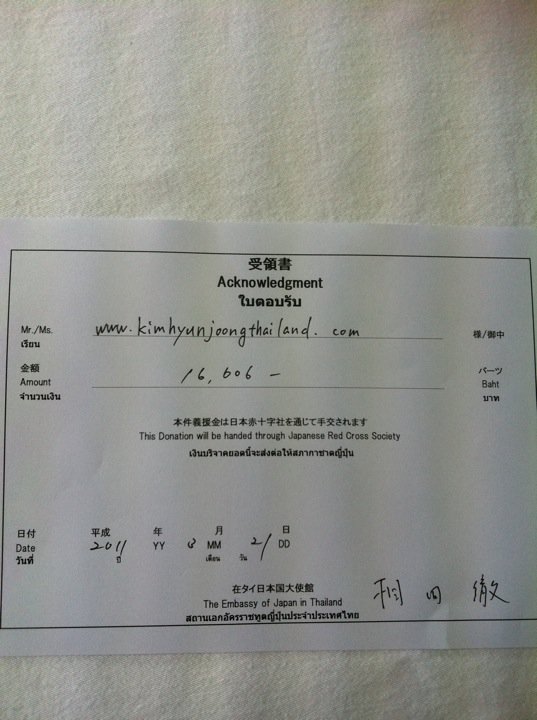 受領書
Acknowledgment
ใบตอบรับ
Mr./Ms. www.kimhyunjoongthailand.com 様/御中
เรียน
金額 バーツ
Amount 16,606 - Baht
จำนวนเงิน บาท
本件義援金は日本赤十字社を通じて手交されます
This Donation will be handed through Japanese Red Cross Society
เงินบริจาคยอดนี้จะส่งต่อให้สภากาชาดญี่ปุ่น
日付 平成 年 月 日
Date 2011 YY 3 MM 21 DD
วันที่ ปี เดือน วัน
在タイ日本国大使館
The Embassy of Japan in Thailand
สถานเอกอัครราชทูตญี่ปุ่นประจำประเทศไทย